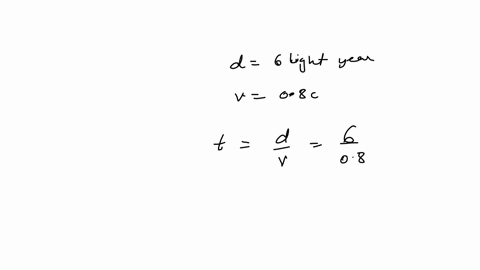 d = 6 light year
v = 0.8c
t = d/v = 6/0.8